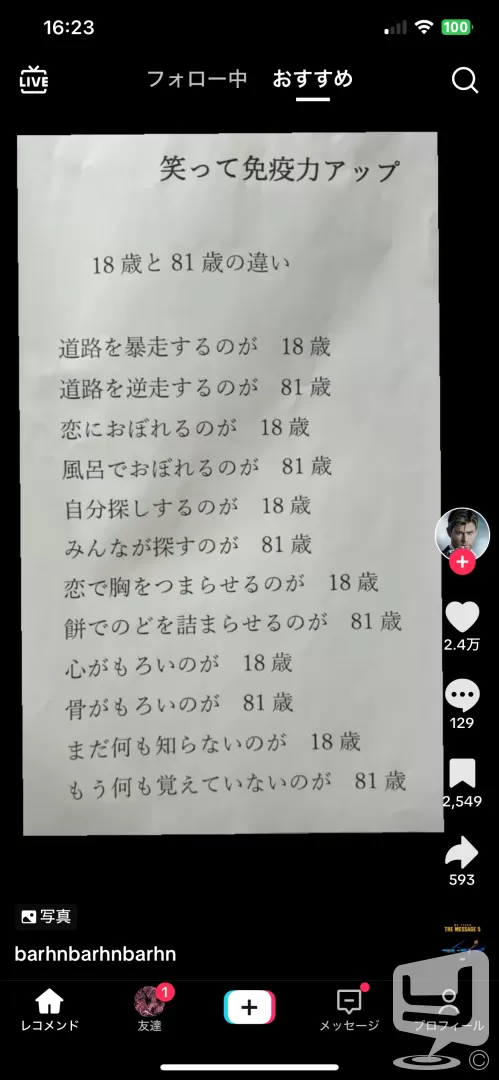 16:23
100
LIVE
フォロー中
おすすめ
笑って免疫力アップ
18歳と81歳の違い
道路を暴走するのが 18歳
道路を逆走するのが 81歳
恋におぼれるのが 18歳
風呂でおぼれるのが 81歳
自分探しするのが 18歳
みんなが探すのが 81歳
恋で胸をつまらせるのが 18歳
餅でのどを詰まらせるのが 81歳
心がもろいのが 18歳
骨がもろいのが 81歳
まだ何も知らないのが 18歳
もう何も覚えていないのが 81歳
2.4万
129
2,549
593
写真
THE MESSAGE 5
barhnbarhnbarhn
1
レコメンド
友達
メッセージ
プロフィール
©